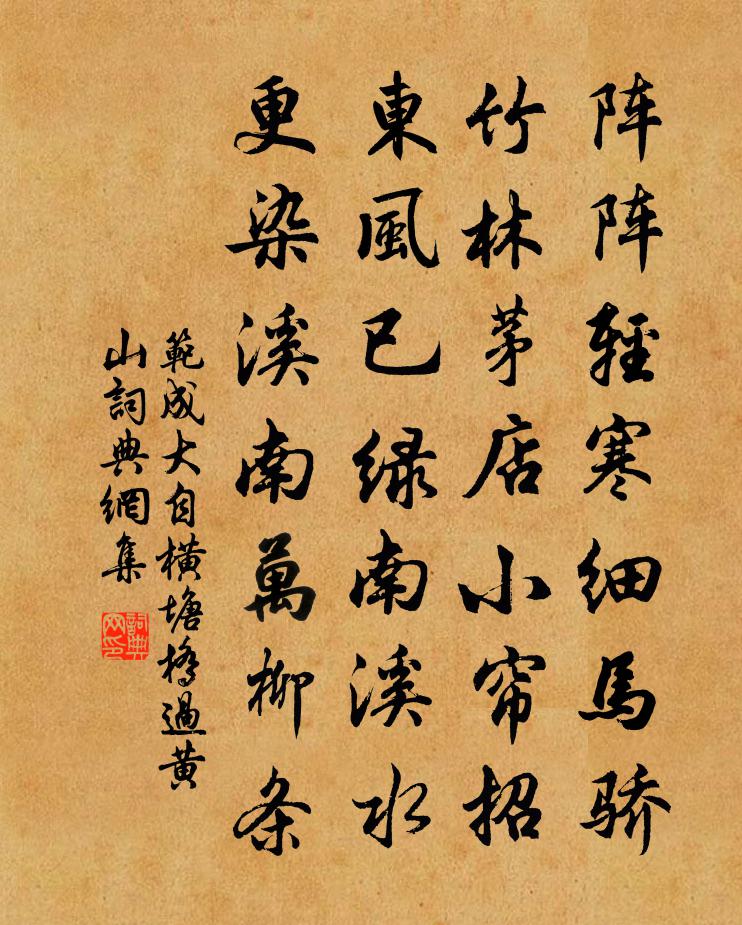 阵阵輕寒细馬骄
竹林茅店小帘招
東風已绿南溪水
更染溪南萬柳条
範成大自橫塘橋過黄
山詞典網集
詞典网印